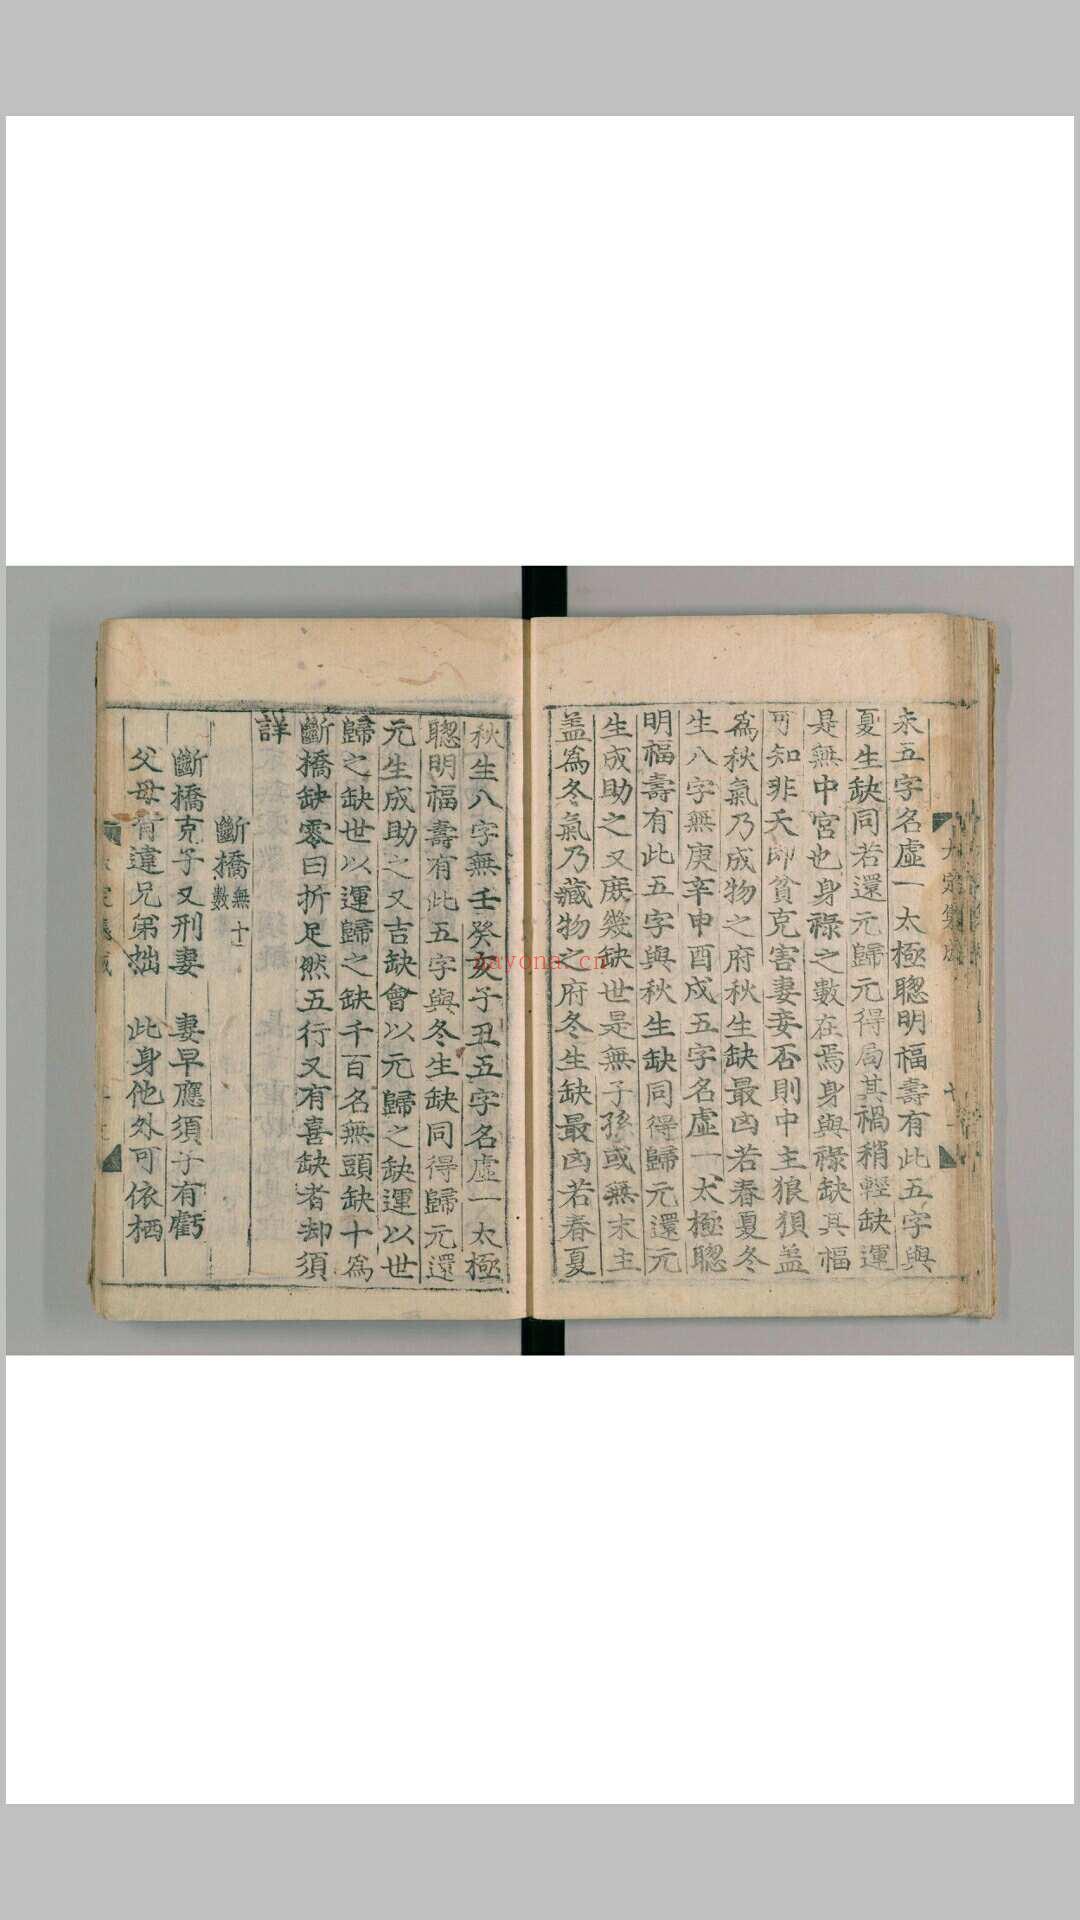 未五字名虛一太極聦明福壽有此五字與
夏生缺同若還元歸元得局其禍稍輕缺運
是無中宮也身祿之數在焉身與祿缺其福
可知非夭即貧克害妻妾否則中主狼狽盖
為秋氣乃成物之府秋生缺最凶若春夏冬
生八字無庚辛申酉戌五字名虛一太極聦
明福壽有此五字與秋生缺同得歸元還元
生成助之又庶幾缺世是無子孫或無末主
盖為冬氣乃藏物之府冬生缺最凶若春夏
秋生八字無壬癸亥子丑五字名虛一太極
聦明福壽有此五字與冬生缺同得歸元還
元生成助之又吉缺會以元歸之缺運以世
歸之缺世以運歸之缺千百名無頭缺十為
斷橋缺零曰折足然五行又有喜缺者却須
詳
斷橋無十數
斷橋克子又刑妻 妻早應須子有虧
父母有違兄弟拙 此身他外可依栖
大定集成
kayona.cn